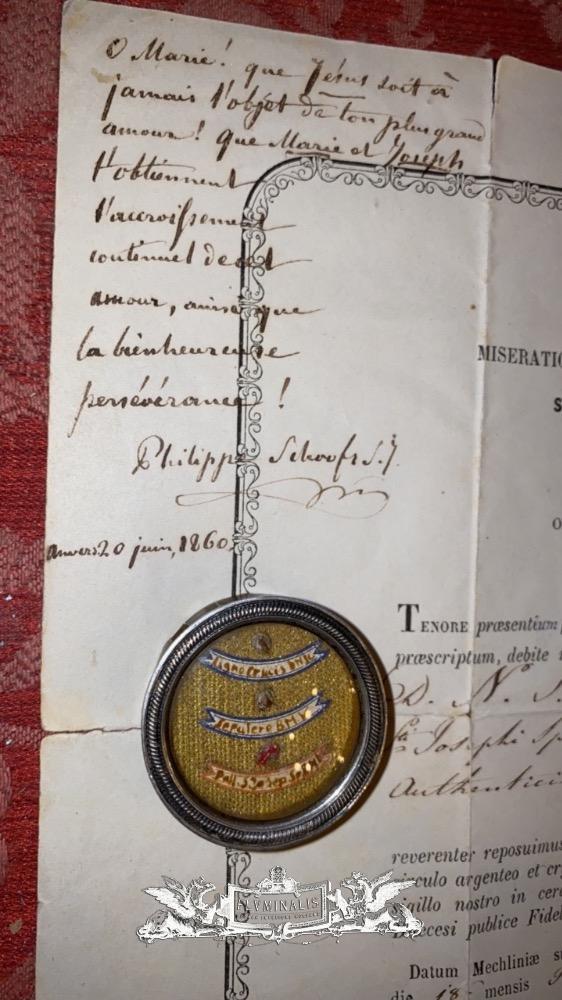 O Marie! que Jésus soit à
jamais l'objet de ton plus grand
amour! que Marie et Joseph
t'obtiennent
l'accroissement
continuel de cet
amour, ainsi que
la bienheureuse
persévérance!
Philippe Schoofs S.J.
Anvers 20 juin, 1860,
MISERATIO
S
O
TENORE præsentium
præscriptum, debite
D. N. J.
Josephi Sp
Authentici
reverenter reposuimus
circulo argenteo et cry
sigillo nostro in cera
Diœcesi publice Fidel
Datum Mechliniæ su
die 18 mensis
Ligno Crucis DNJC
Sepulcro BMV
Pall. S. Josep. Sp BMV
LVMINALIS